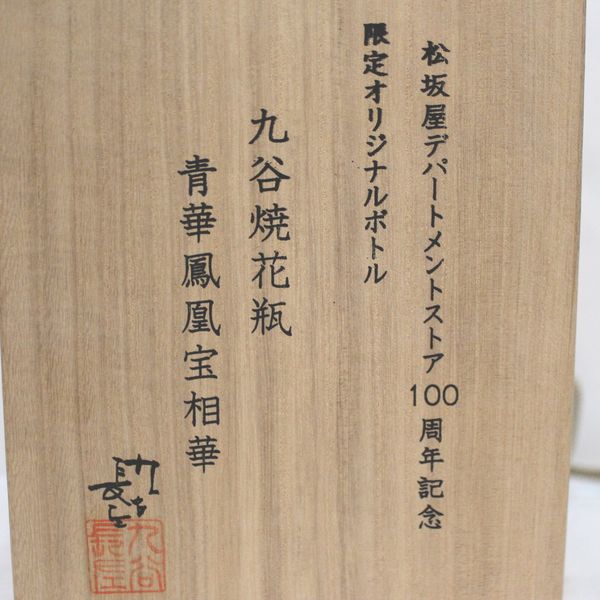 松坂屋デパートメントストア100周年記念
限定オリジナルボトル
九谷焼花瓶
青華鳳凰宝相華
九谷
長左